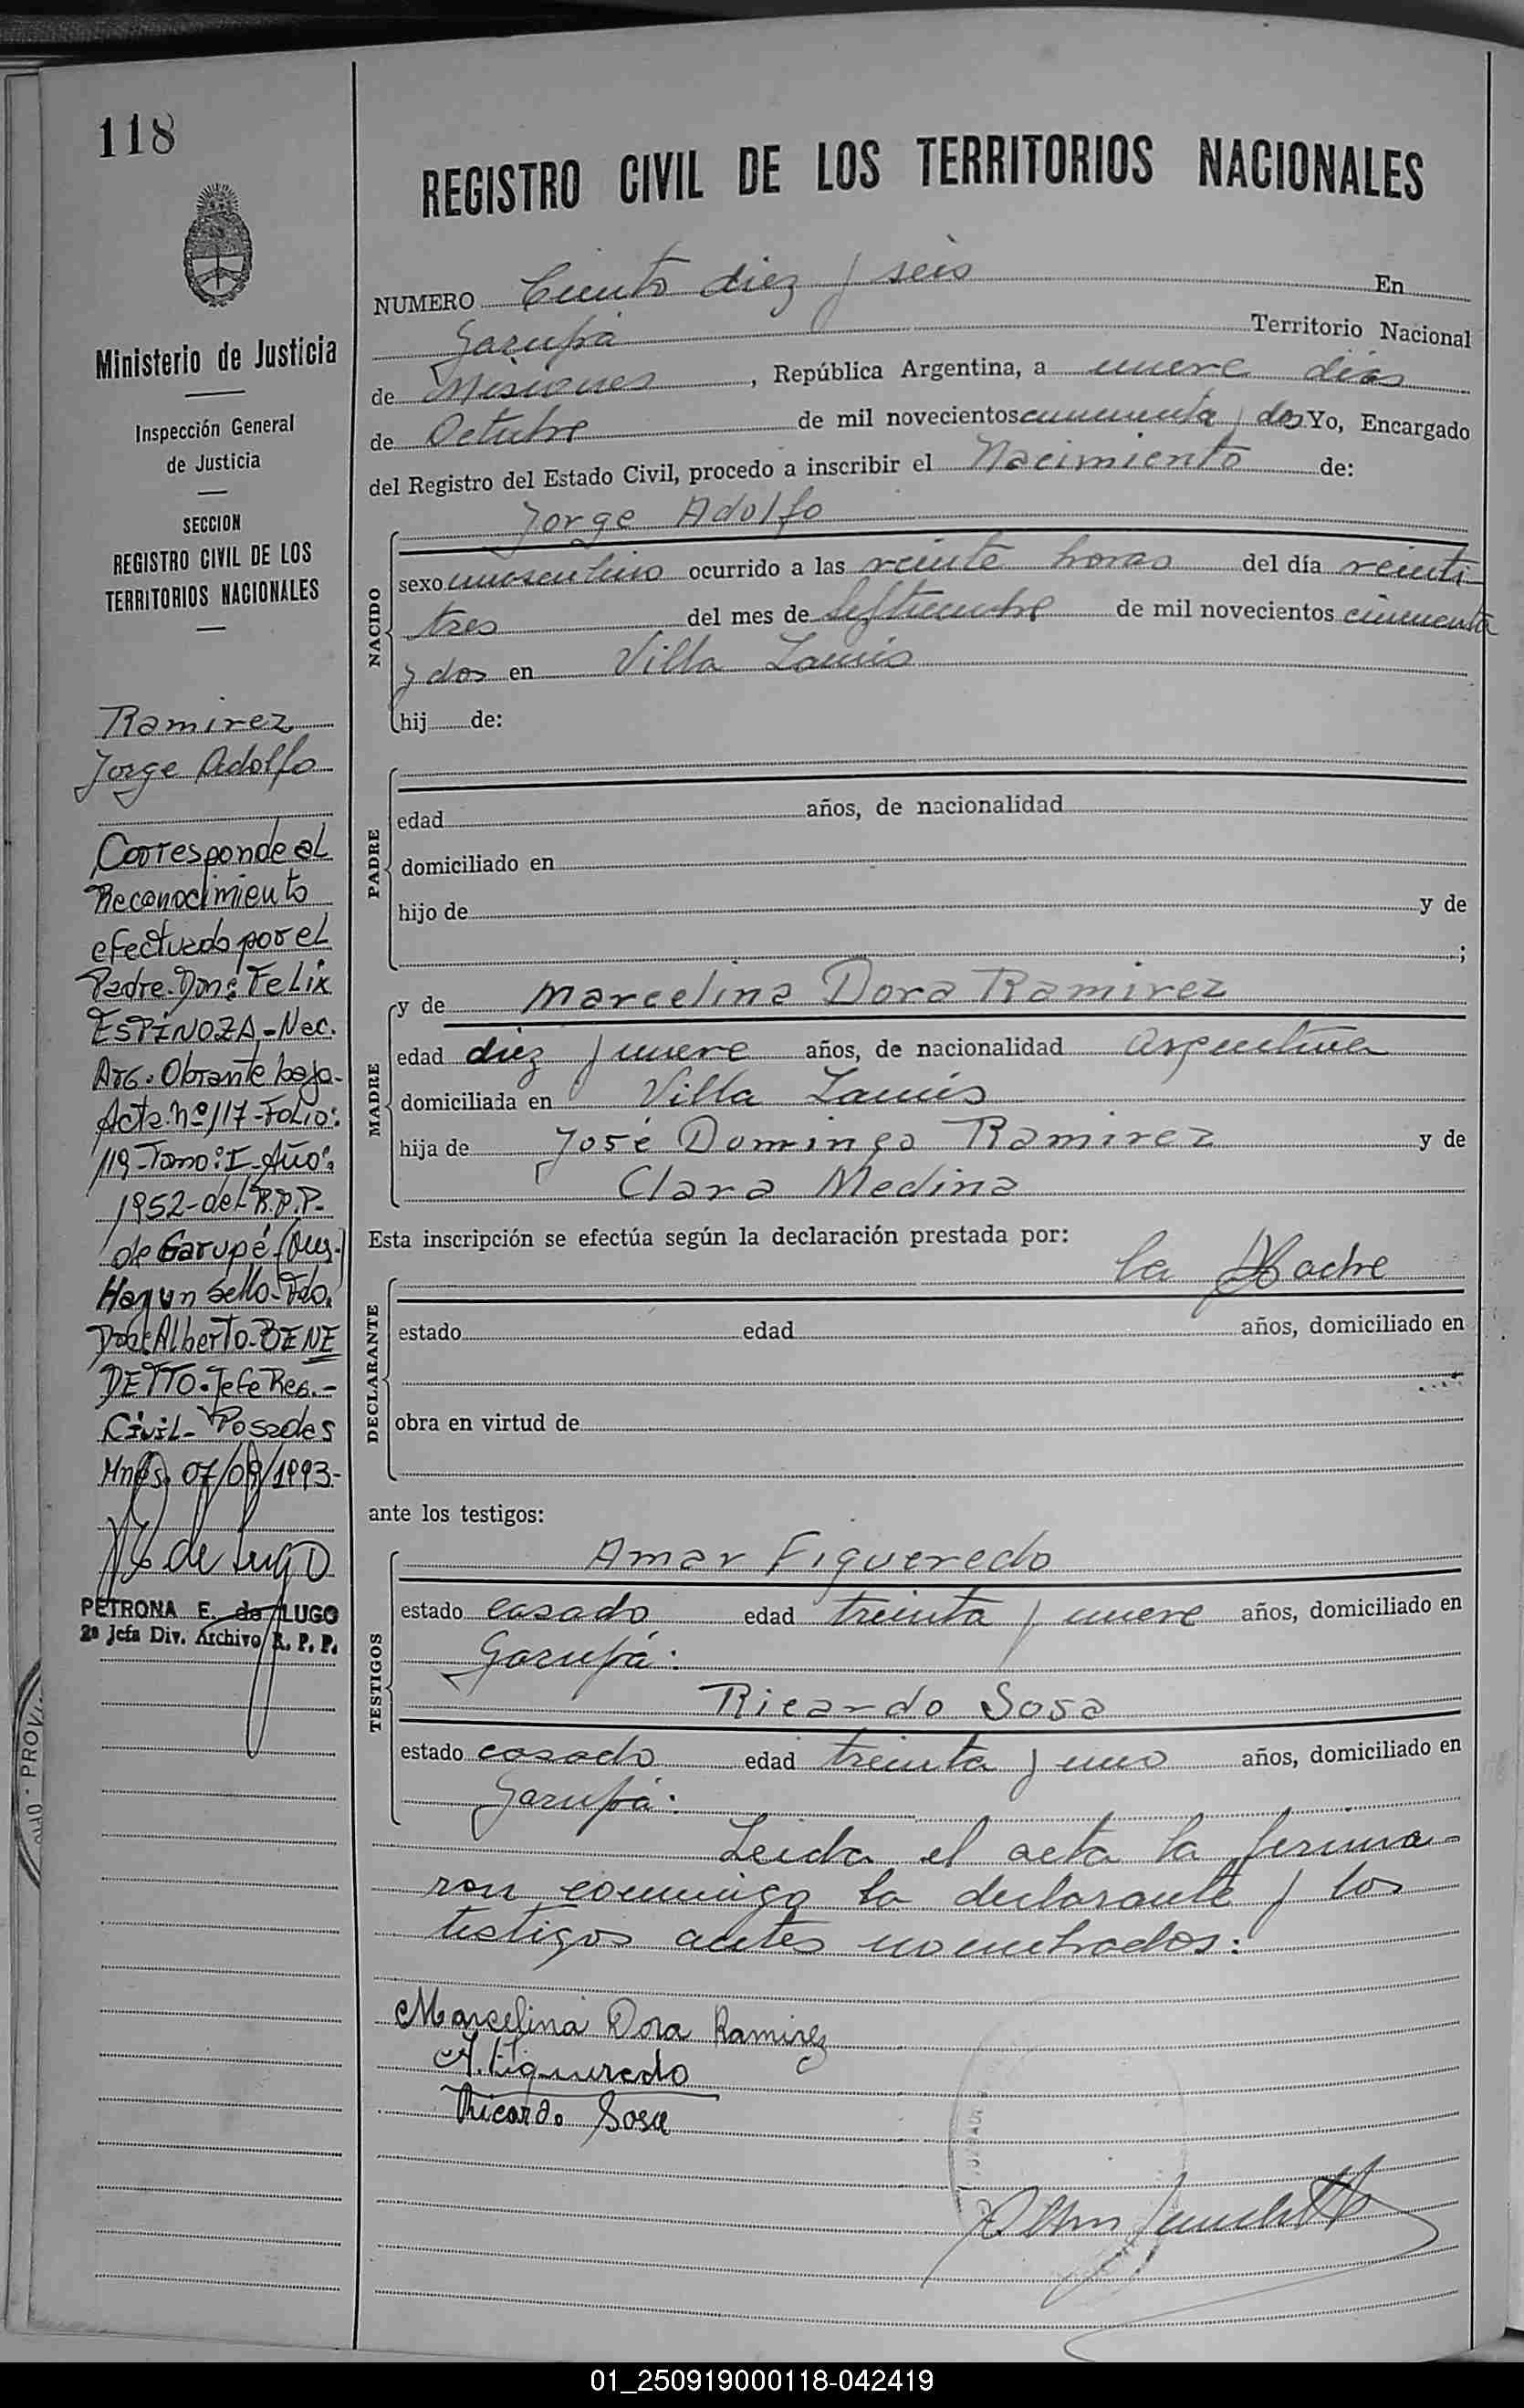 118
Ministerio de Justicia
Inspección General
de Justicia
SECCION
REGISTRO CIVIL DE LOS
TERRITORIOS NACIONALES
Ramirez
Jorge Adolfo
Corresponde al
Reconocimiento
efectuado por el
Padre-Don: Felix
ESPINOZA-Nac.
Arg. Obrante bajo-
Acta nº 117-Folio:
119-Tomo: I-Año:
1952-del R.P.P.
de Garupá-(Mns.)
Hay un Sello-Fdo.
Alberto-BENE
DETTO-Jefe Reg.-
Civil-Posadas
Mnes, 07/09/1993-
PETRONA E. de LUGO
2ª Jefa Div. Archivo R. P. P.
REGISTRO CIVIL DE LOS TERRITORIOS NACIONALES
NUMERO Ciento diez y seis En
Garupá Territorio Nacional
de Misiones, República Argentina, a nueve días
de Octubre de mil novecientos cincuenta y dos Yo, Encargado
del Registro del Estado Civil, procedo a inscribir el Nacimiento de:
Jorge Adolfo
NACIDO
sexo masculino ocurrido a las veinte horas del día veinti-
tres del mes de Septiembre de mil novecientos cincuenta
y dos en Villa Lanús
hij de:
PADRE
edad años, de nacionalidad
domiciliado en
hijo de y de
;
MADRE
y de Marcelina Dora Ramirez
edad diez y nueve años, de nacionalidad argentina
domiciliada en Villa Lanús
hija de José Domingo Ramirez y de
Clara Medina
Esta inscripción se efectúa según la declaración prestada por:
la Madre
DECLARANTE
estado edad años, domiciliado en
obra en virtud de
ante los testigos:
TESTIGOS
Amar Figueredo
estado casado edad treinta y nueve años, domiciliado en
Garupá.
Ricardo Sosa
estado casado edad treinta y uno años, domiciliado en
Garupá.
Leida el acta la firma-
ron conmigo la declarante y los
testigos antes nombrados.
Marcelina Dora Ramirez
A. Figueredo
Ricardo Sosa
01_250919000118-042419